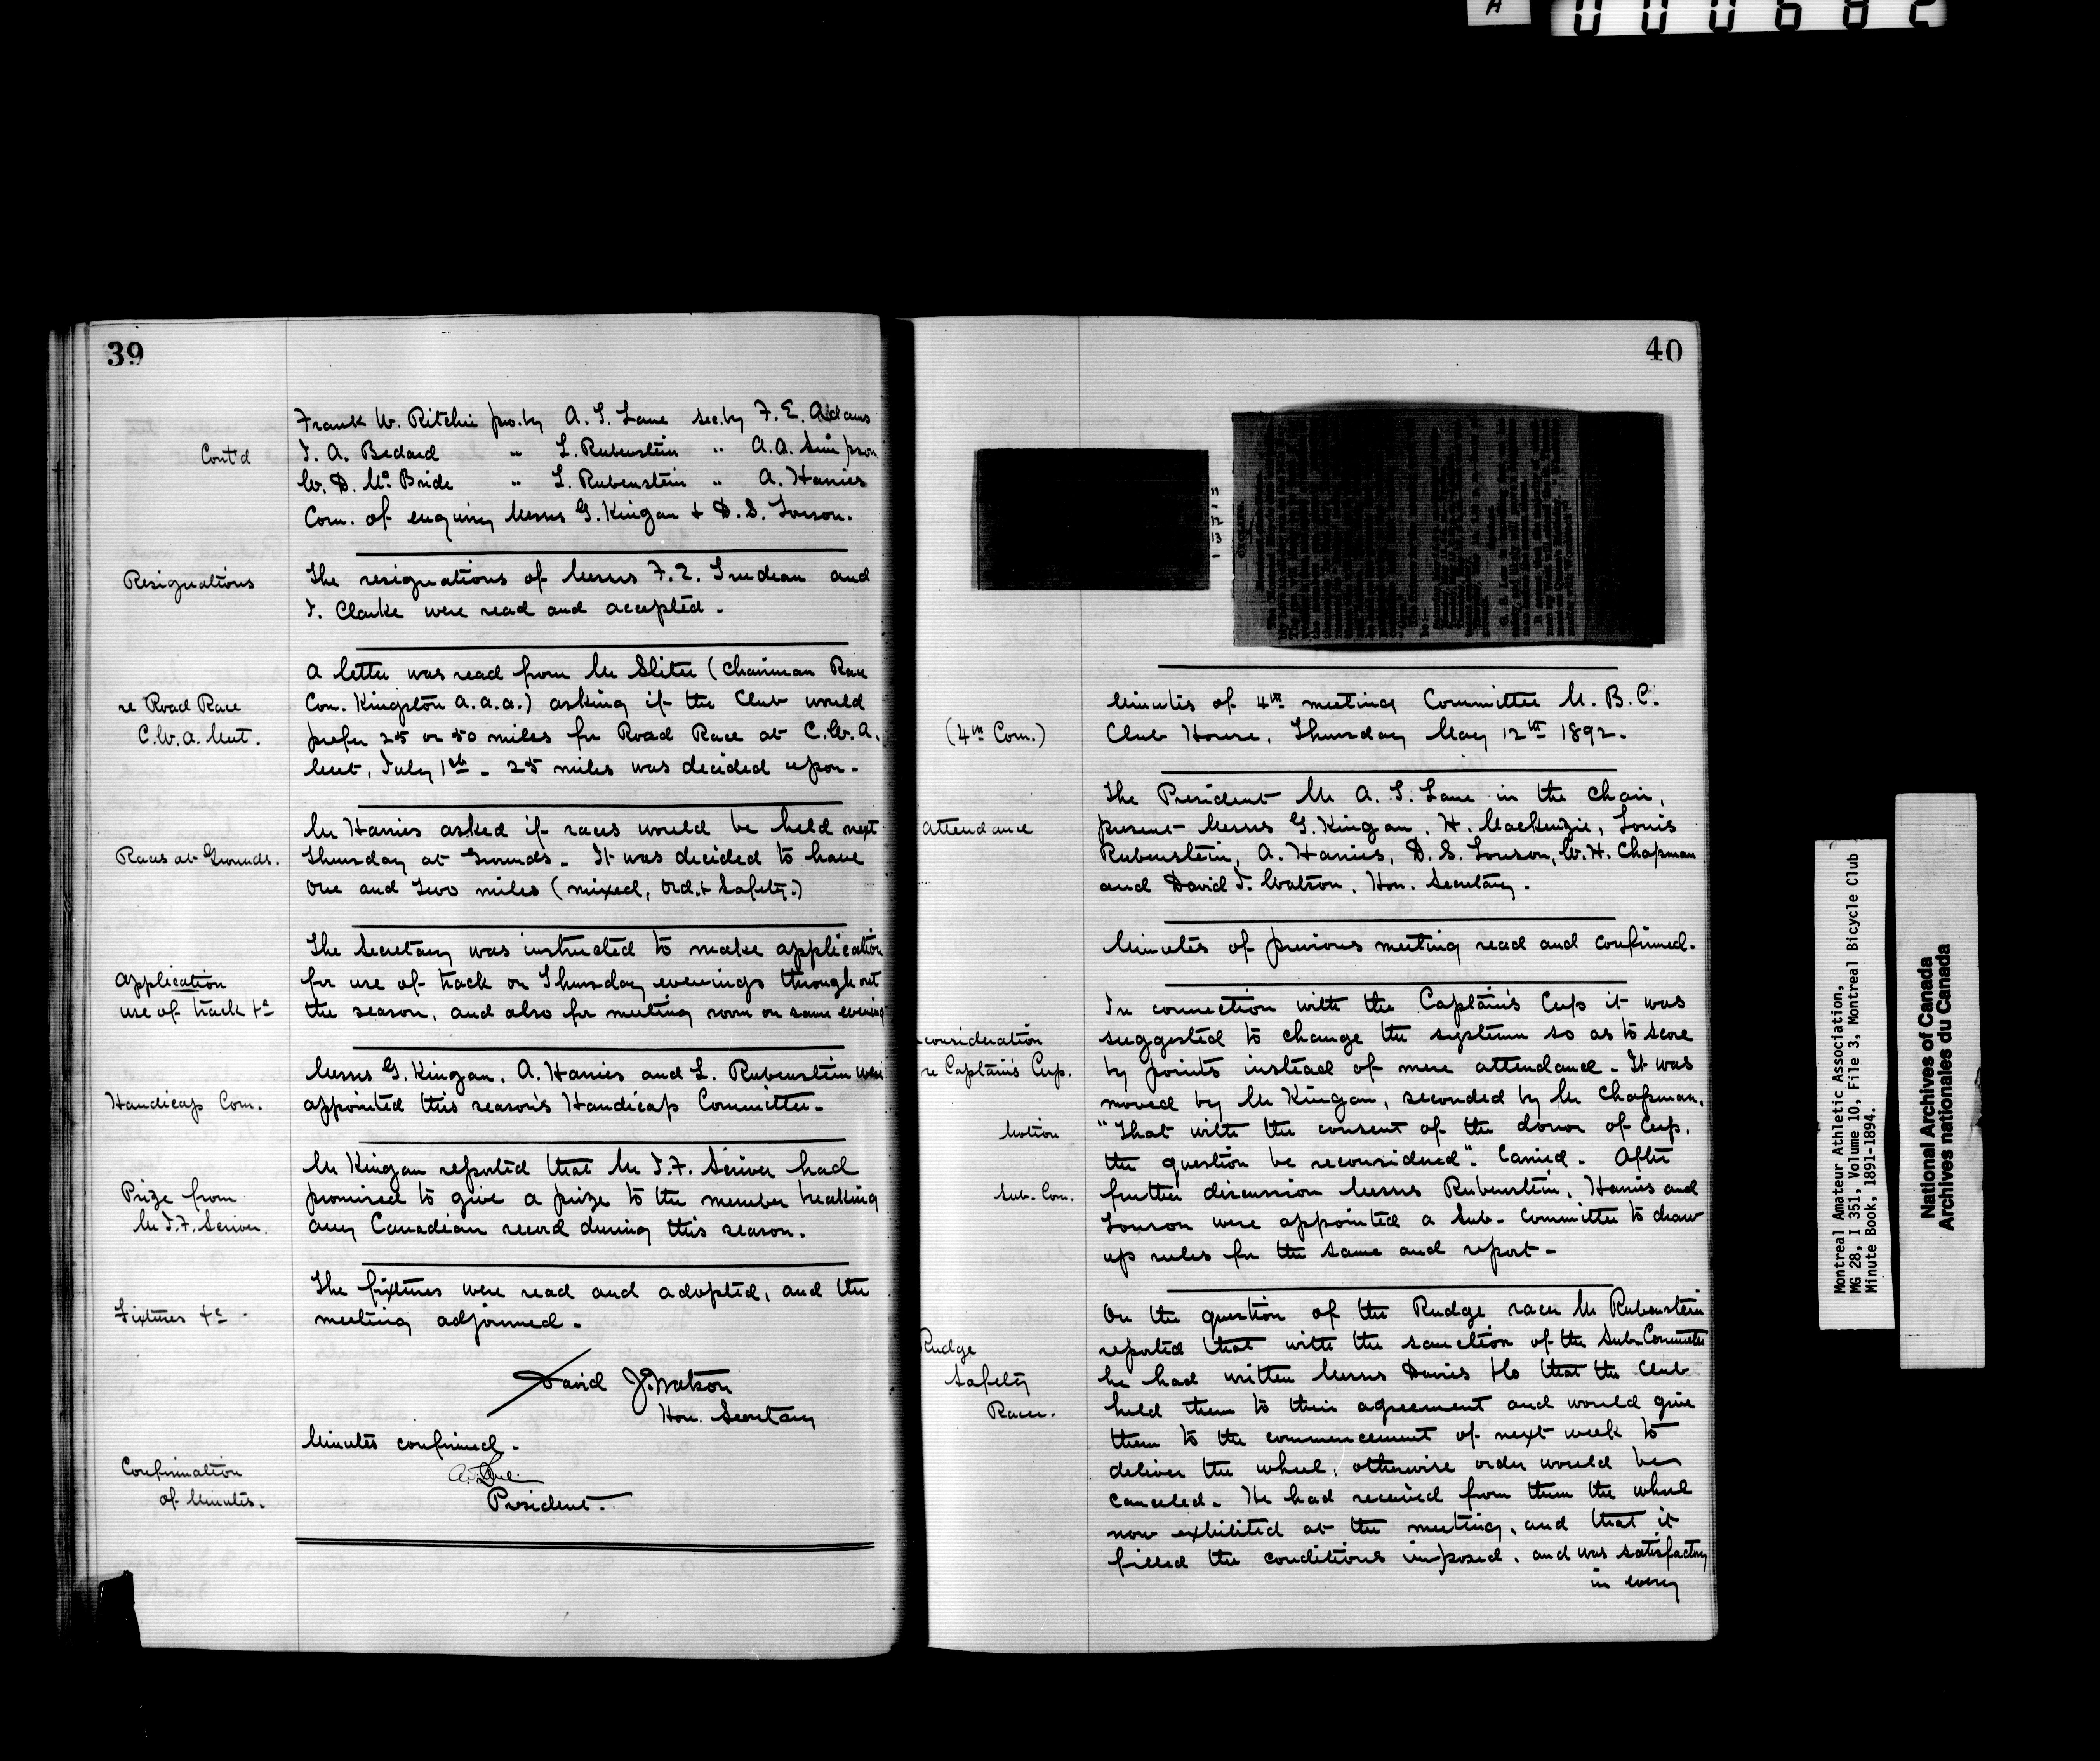 A
000682
39
Frank W. Ritchie pro. by A. T. Lane sec. by F. E. Adams
Cont'd
J. A. Bedard " L. Rubenstein " A. A. Simpson
W. D. McBride " L. Rubenstein " A. Harries
Com. of enquiry Messrs G. Kingan & D. S. Louson.
Resignations
The resignations of Messrs F. Z. Trudeau and
J. Clarke were read and accepted.
re Road Race
C.W.A. Meet.
A letter was read from Mr Sliter (Chairman Race
Com. Kingston A.A.A.) asking if the Club would
prefer 25 or 50 miles for Road Race at C.W.A.
Meet, July 1st - 25 miles was decided upon.
Races at Grounds.
Mr Harries asked if races would be held next
Thursday at Grounds - It was decided to have
One and Two miles (mixed, Ord. & Safety.)
Application
use of track &c
The Secretary was instructed to make application
for use of track on Thursday evenings throughout
the season, and also for meeting room on same evening
Handicap Com.
Messrs G. Kingan, A. Harries and L. Rubenstein were
appointed this season's Handicap Committee.
Prize from
Mr J. F. Scriver.
Mr Kingan reported that Mr J. F. Scriver had
promised to give a prize to the member breaking
any Canadian record during this season.
Fixtures &c
The fixtures were read and adopted, and the
meeting adjourned.
David J. Watson
Hon. Secretary
Confirmation
of Minutes.
Minutes confirmed.
A. T. Lane
President.
40
11
-
12
13
-
(4th Com.)
Minutes of 4th meeting Committee M. B. C.
Club House, Thursday May 12th 1892.
Attendance
The President Mr A. T. Lane in the chair,
present Messrs G. Kingan, H. Mackenzie, Louis
Rubenstein, A. Harries, D. S. Louson, W. H. Chapman
and David J. Watson, Hon. Secretary.
Minutes of previous meeting read and confirmed.
consideration
re Captain's Cup.
In connection with the Captain's Cup it was
suggested to change the system so as to score
by points instead of mere attendance - It was
moved by Mr Kingan, seconded by Mr Chapman,
Motion
"That with the consent of the donor of Cup,
the question be reconsidered". Carried - After
Sub-Com.
further discussion Messrs Rubenstein, Harries and
Louson were appointed a Sub-Committee to draw
up rules for the same and report -
Rudge
Safety
Racer.
On the question of the Rudge racer Mr Rubenstein
reported that with the sanction of the Sub-Committee
he had written Messrs Davies &Co that the Club
held them to their agreement and would give
them to the commencement of next week to
deliver the wheel, otherwise order would be
canceled - He had received from them the wheel
now exhibited at the meeting, and that it
filled the conditions imposed, and was satisfactory
in every
Montreal Amateur Athletic Association,
MG 28, I 351, Volume 10, File 3, Montreal Bicycle Club
Minute Book, 1891-1894.
National Archives of Canada
Archives nationales du Canada